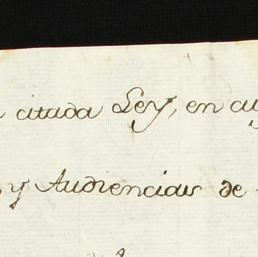 citada Ley, en cuy
y Audiencias de